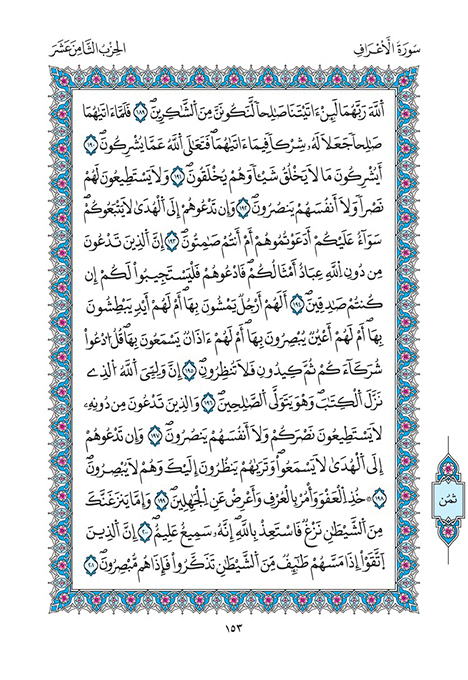 سُورَةُ الْأَعْرَافِ
الحِزْبُ الثَّامِنَ عَشَرَ
اَللَّهَ رَبَّهُمَا لَئِنَ اٰتَيْتَنَا صَٰلِحاً لَّنَكُونَنَّ مِنَ اَلشَّٰكِرِينَ ١٨٩ فَلَمَّا ءَاتَيٰهُمَا
صَٰلِحاً جَعَلَا لَهُۥ شِرْكاً فِيمَا ءَاتَيٰهُمَا فَتَعَٰلَى اَللَّهُ عَمَّا يُشْرِكُونَ ١٩٠
أَيُشْرِكُونَ مَا لَا يَخْلُقُ شَيْـٔاً وَهُمْ يُخْلَقُونَ ١٩١ وَلَا يَسْتَطِيعُونَ لَهُمْ
نَصْراً وَلَا أَنفُسَهُمْ يَنصُرُونَ ١٩٢ وَإِن تَدْعُوهُمْ إِلَى اَلْهُدَىٰ لَا يَتْبَعُوكُمْ
سَوَآءٌ عَلَيْكُمْ أَدَعَوْتُمُوهُمْ أَمَ اَنتُمْ صَٰمِتُونَ ١٩٣ إِنَّ اَلذِينَ تَدْعُونَ
مِن دُونِ اِللَّهِ عِبَادٌ اَمْثَالُكُمْ فَادْعُوهُمْ فَلْيَسْتَجِيبُواْ لَكُمْ إِن
كُنتُمْ صَٰدِقِينَ ١٩٤ أَلَهُمْ أَرْجُلٌ يَمْشُونَ بِهَا أَمْ لَهُمْ أَيْدٍ يَبْطِشُونَ
بِهَا أَمْ لَهُمْ أَعْيُنٌ يُبْصِرُونَ بِهَا أَمْ لَهُمْ ءَاذَانٌ يَسْمَعُونَ بِهَا قُلُ اُدْعُواْ
شُرَكَآءَكُمْ ثُمَّ كِيدُونِ فَلَا تُنظِرُونِ ١٩٥ إِنَّ وَلِيِّـيَ اَللَّهُ اُلذِے
نَزَّلَ اَلْكِتَٰبَ وَهُوَ يَتَوَلَّى اَلصَّٰلِحِينَ ١٩٦ وَالذِينَ تَدْعُونَ مِن دُونِهِۦ
لَا يَسْتَطِيعُونَ نَصْرَكُمْ وَلَا أَنفُسَهُمْ يَنصُرُونَ ١٩٧ وَإِن تَدْعُوهُمْ
إِلَى اَلْهُدَىٰ لَا يَسْمَعُواْ وَتَرَيٰهُمْ يَنظُرُونَ إِلَيْكَ وَهُمْ لَا يُبْصِرُونَ
١٩٨ خُذِ اِلْعَفْوَ وَامُرْ بِالْعُرْفِ وَأَعْرِضْ عَنِ اِلْجَٰهِلِينَ ١٩٩ وَإِمَّا يَنزَغَنَّكَ
مِنَ اَلشَّيْطَٰنِ نَزْغٌ فَاسْتَعِذْ بِاللَّهِ إِنَّهُۥ سَمِيعٌ عَلِيمٌ ٢٠٠ إِنَّ اَلذِينَ
اَتَّقَوِاْ إِذَا مَسَّهُمْ طَٰٓئِفٌ مِّنَ اَلشَّيْطَٰنِ تَذَكَّرُواْ فَإِذَا هُم مُّبْصِرُونَ ٢٠١
ثُمُن
١٥٣